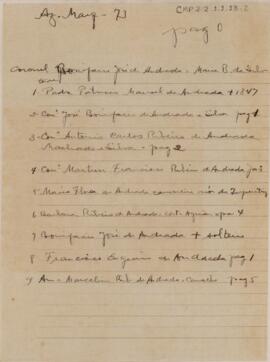 Az. Marq - 73
CMP 2.2.1.1.28-2
pag 0
Coronel Bonifacio José de Andrada - Maria B. da Silva
1 Padre Patricio Manoel de Andrada + 1847
2 - Conº José Bonifacio de Andrada e Silva pag 1
3 - Conº Antonio Carlos Ribeiro de Andrada
Machado e Silva - pag 2
4 Conº Martim Francisco Ribeiro de Andrada pag 3
5 Maria Flora de Andrada camareira mór da Imperatriz
6 Barbara Ribeiro de Andrada pag 4
7 Bonifacio José de Andrada + solteiro
8 Francisco Eugenio de Andrada pag 1
9 Anna Marcelina Rib. de Andrada pag 5